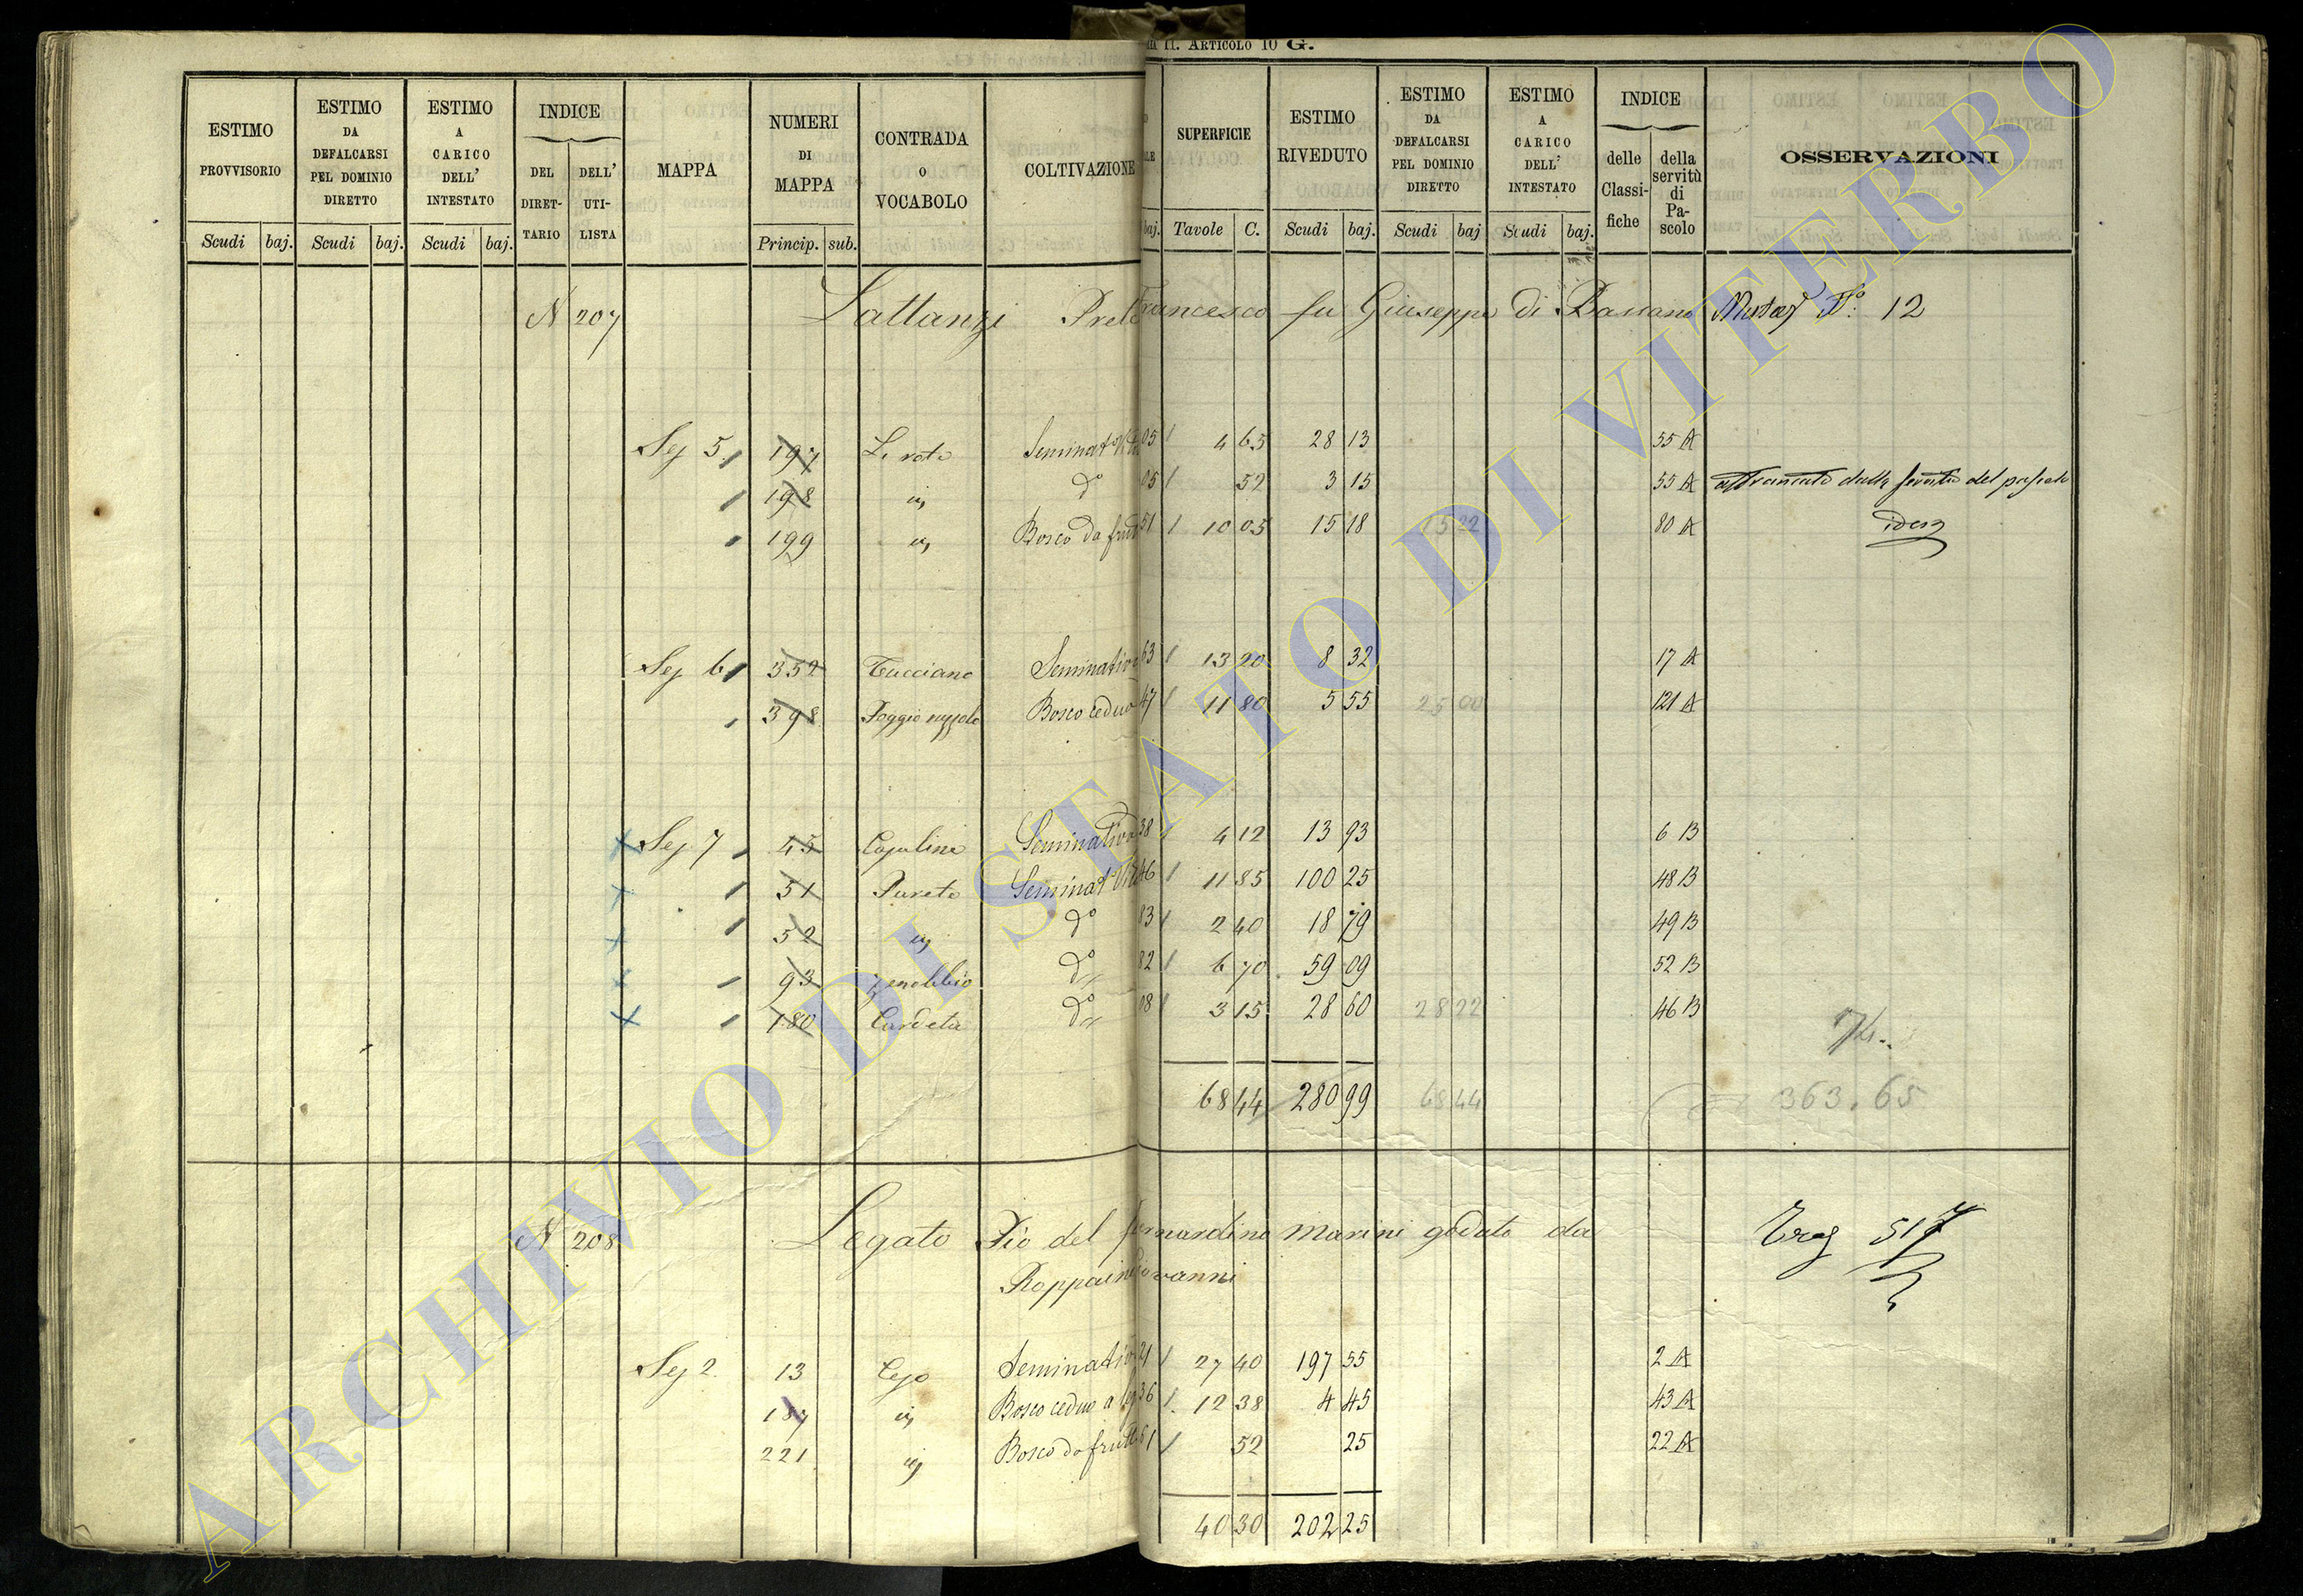 m II. ARTICOLO 10 G.
ESTIMO PROVVISORIO | ESTIMO DA DEFALCARSI PEL DOMINIO DIRETTO | ESTIMO A CARICO DELL' INTESTATO | INDICE DEL DIRETTARIO | DELL' UTILISTA | MAPPA | NUMERI DI MAPPA | CONTRADA O VOCABOLO | COLTIVAZIONE | SUPERFICIE | ESTIMO RIVEDUTO | ESTIMO DA DEFALCARSI PEL DOMINIO DIRETTO | ESTIMO A CARICO DELL' INTESTATO | INDICE delle Classifiche | della servitù di Pascolo | OSSERVAZIONI
Scudi baj. Scudi baj. Scudi baj. Princip. sub. baj. Tavole C. Scudi baj. Scudi baj Scudi baj.
N 207 Lattanzi Prete Francesco fu Giuseppe di Bassano 12
Seg 5 197 05 4 65 28 13 55 A
198 do 05 52 3 15 55 A
199 Bosco da frutt 51 10 05 15 18 15 22 80 A idem
Seg 6 352 Tucciano Seminativo 63 13 20 8 32 17 A
398 Bosco ceduo 47 11 80 5 55 25 00 121 A
Seg 7 45 Seminativo 38 4 12 13 93 6 B
51 Pureto Seminat Vit 46 11 85 100 25 48 B
52 do 83 2 40 18 79 49 B
93 Zenobbio do 82 6 70 59 09 52 B
180 Cardeta do 08 3 15 28 60 28 22 46 B
74
68 44 280 99 68 44 363.65
N 208 Legato Pio del Bernardino Marini goduto da
Giovanni
517
Seg 2. 13 Cejo Seminativo 21 27 40 197 55 2 A
187 Bosco ceduo a 36 12 38 4 45 43 A
221 Bosco da frutt 51 52 25 22 A
40 30 202 25
ARCHIVIO DI STATO DI VITERBO